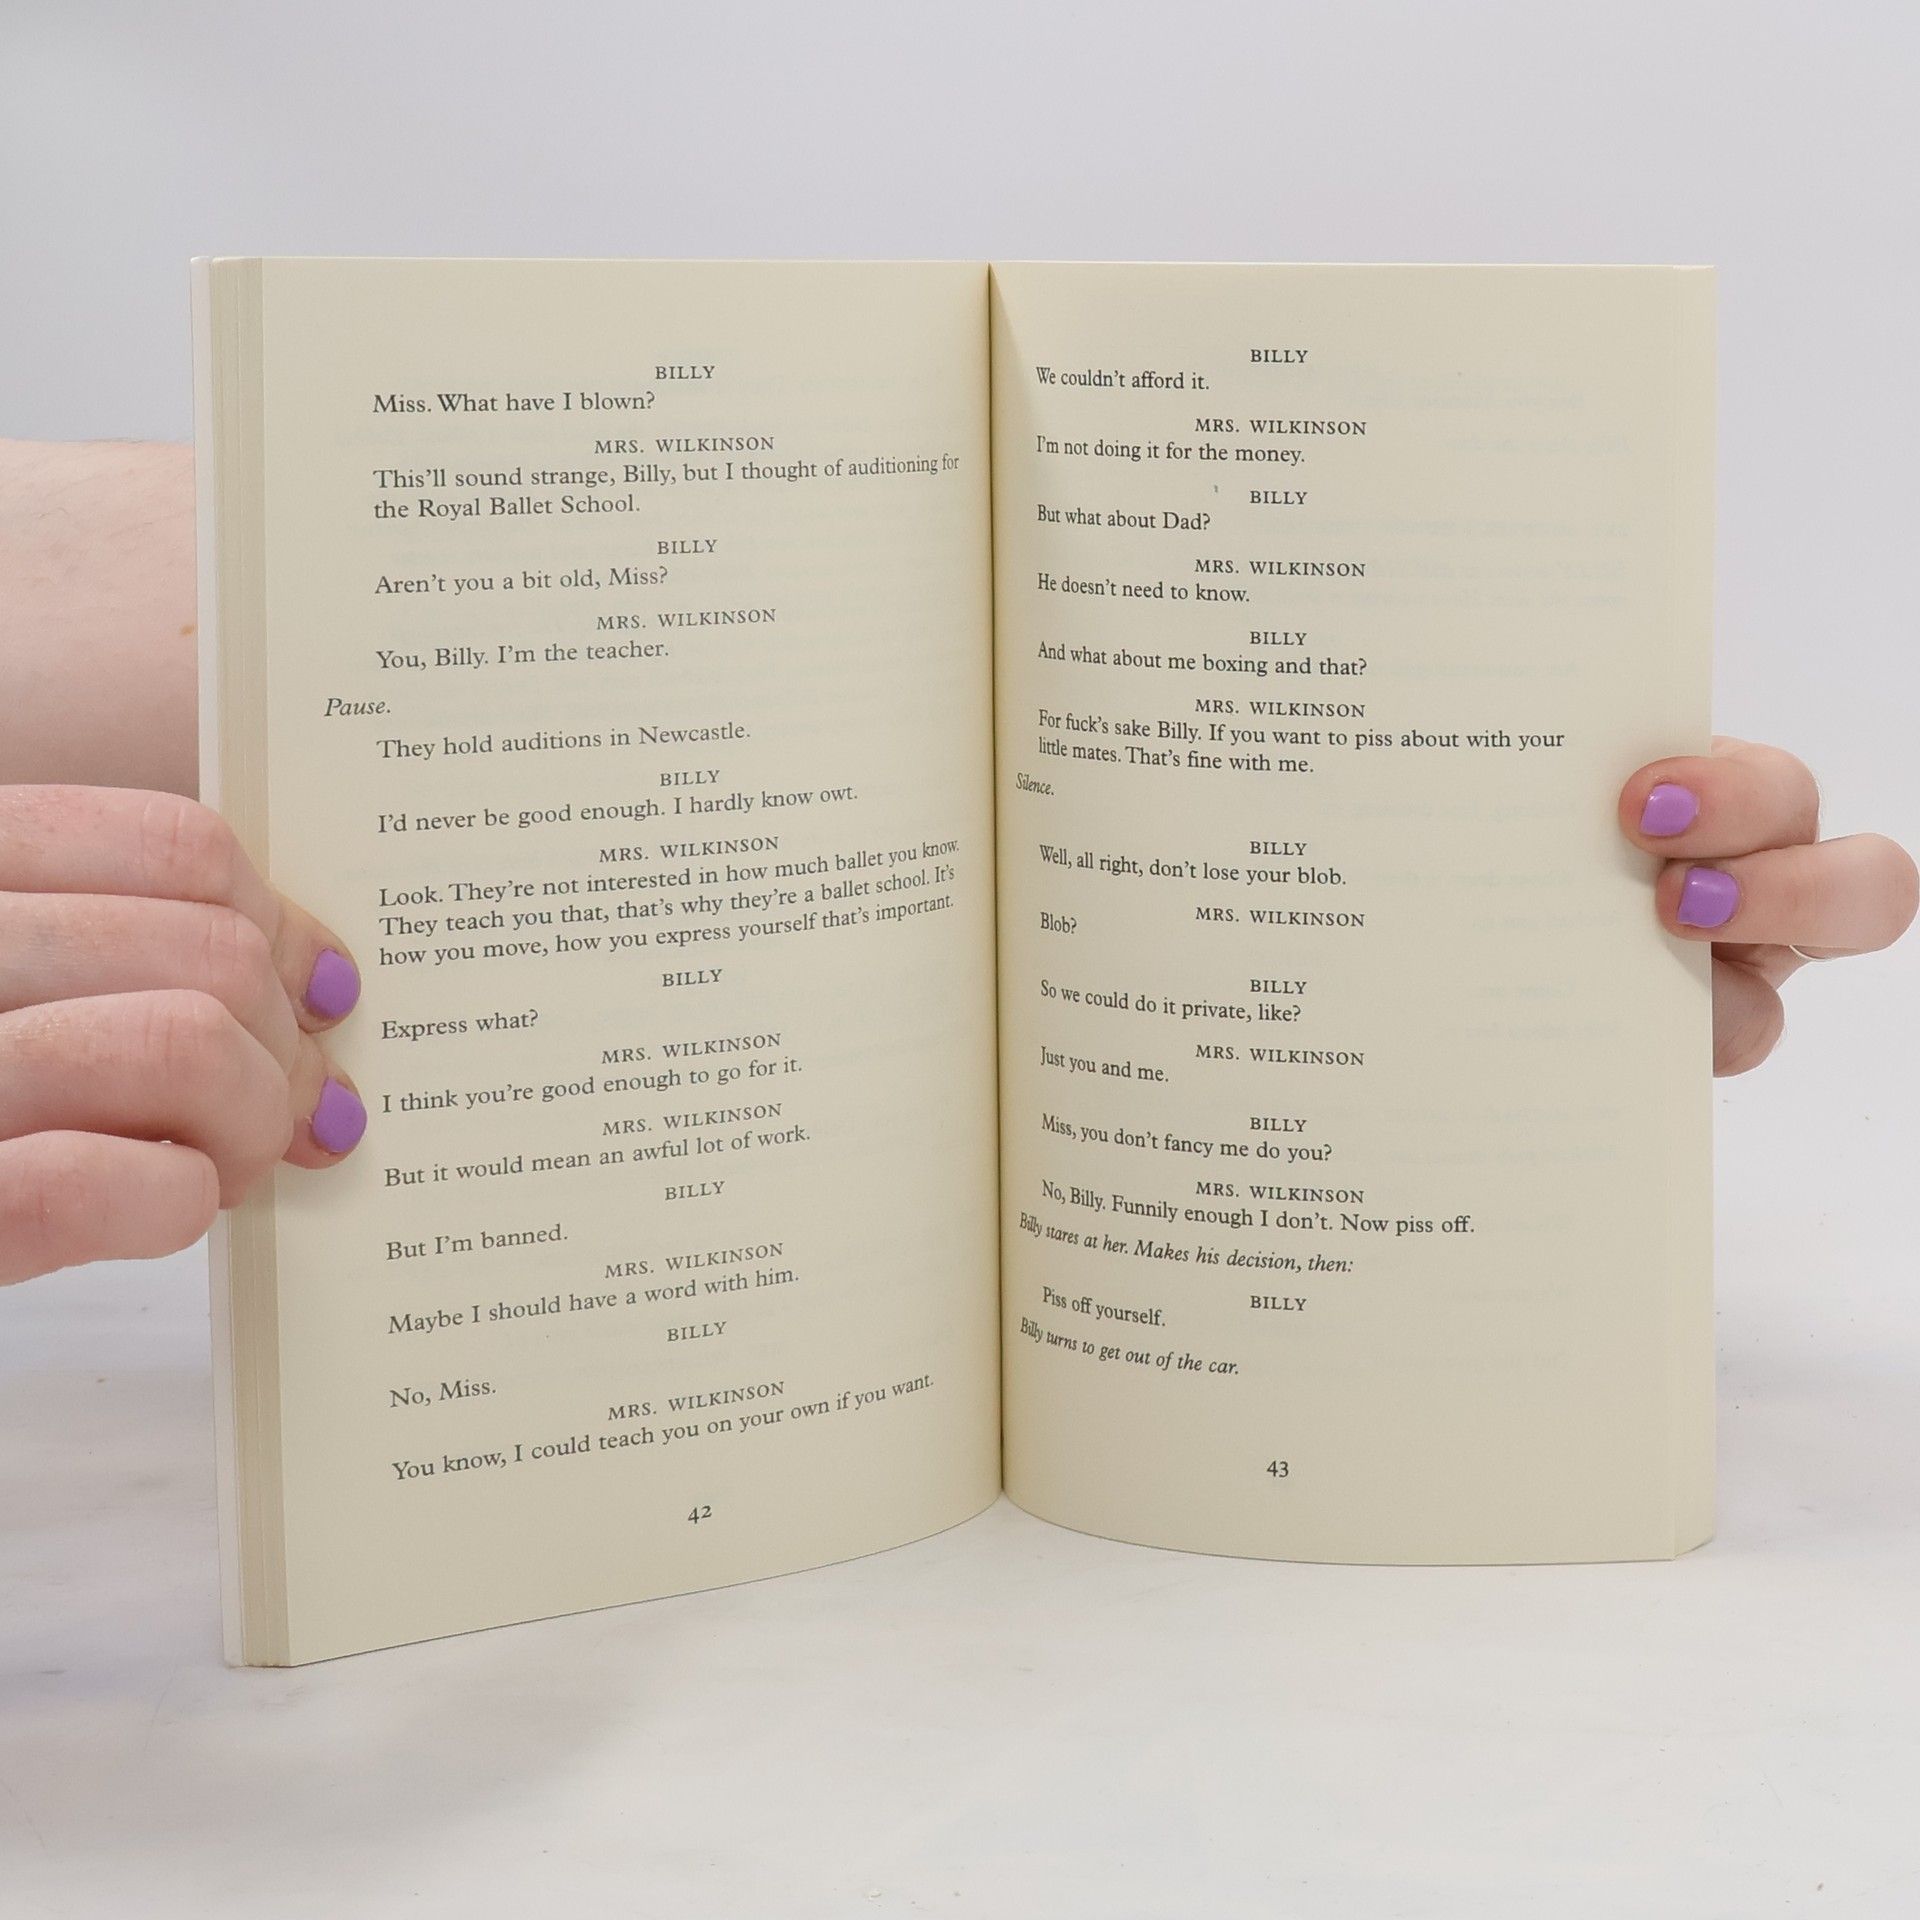 BILLY
Miss. What have I blown?
MRS. WILKINSON
This'll sound strange, Billy, but I thought of auditioning for
the Royal Ballet School.
BILLY
Aren't you a bit old, Miss?
MRS. WILKINSON
You, Billy. I'm the teacher.
Pause.
They hold auditions in Newcastle.
BILLY
I'd never be good enough. I hardly know owt.
MRS. WILKINSON
Look. They're not interested in how much ballet you know.
They teach you that, that's why they're a ballet school. It's
how you move, how you express yourself that's important.
BILLY
Express what?
MRS. WILKINSON
I think you're good enough to go for it.
MRS. WILKINSON
But it would mean an awful lot of work.
BILLY
But I'm banned.
MRS. WILKINSON
Maybe I should have a word with him.
BILLY
No, Miss.
MRS. WILKINSON
You know, I could teach you on your own if you want.
42
BILLY
We couldn't afford it.
MRS. WILKINSON
I'm not doing it for the money.
BILLY
But what about Dad?
MRS. WILKINSON
He doesn't need to know.
BILLY
And what about me boxing and that?
MRS. WILKINSON
For fuck's sake Billy. If you want to piss about with your
little mates. That's fine with me.
Silence.
BILLY
Well, all right, don't lose your blob.
MRS. WILKINSON
Blob?
BILLY
So we could do it private, like?
MRS. WILKINSON
Just you and me.
BILLY
Miss, you don't fancy me do you?
MRS. WILKINSON
No, Billy. Funnily enough I don't. Now piss off.
Billy stares at her. Makes his decision, then:
BILLY
Piss off yourself.
Billy turns to get out of the car.
43